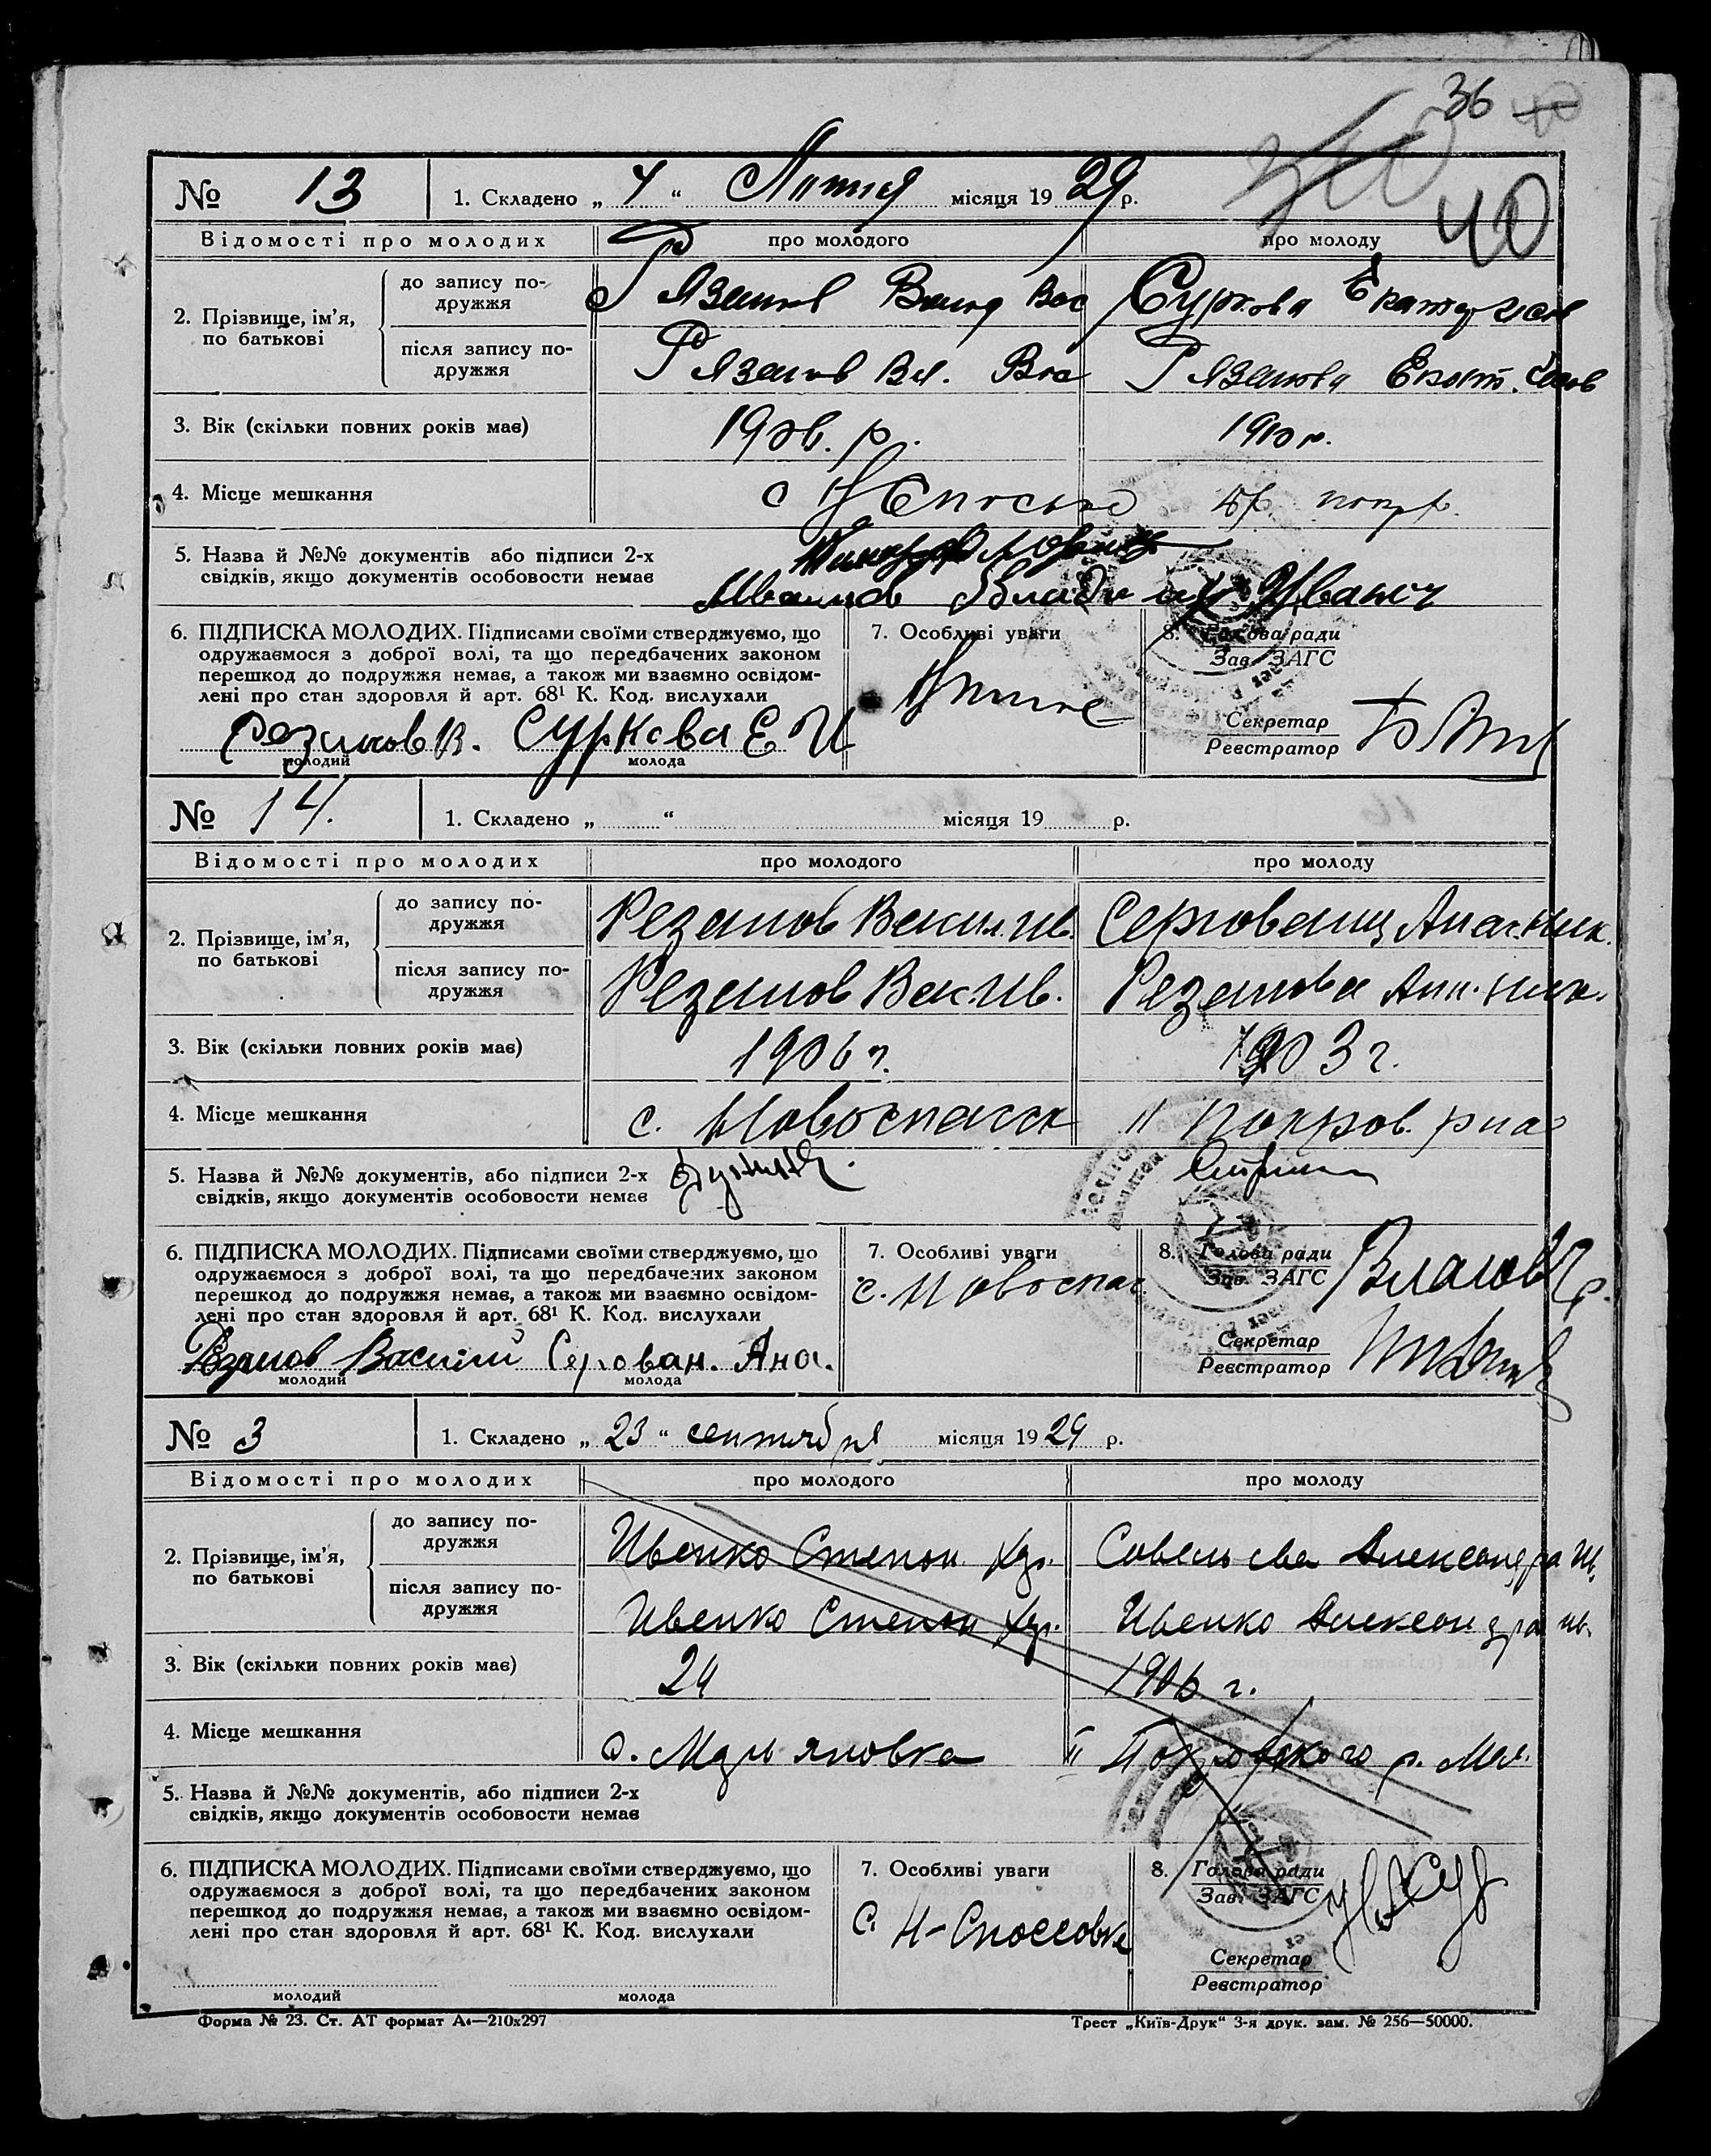 36
40
№ 13 1. Складено „ 4 “ Лютня місяця 19 29 р.
Відомості про молодих про молодого про молоду
до запису по-
дружжя
Рязанов Суркова
2. Прізвище, ім’я,
по батькові
після запису по-
дружжя
Рязанов Вл. Вас Рязанова Екат.
3. Вік (скільки повних років має) 1906. р. 1910 р.
4. Місце мешкання с
5. Назва й №№ документів або підписи 2-х
свідків, якщо документів особовости немає
Иванов Владимир Иванич
6. ПІДПИСКА МОЛОДИХ. Підписами своїми стверджуємо, що
одружаємося з доброї волі, та що передбачених законом
перешкод до подружжя немає, а також ми взаємно освідом-
лені про стан здоровля й арт. 68¹ К. Код. вислухали
Резанов В. Суркова Е И
молодий молода
7. Особливі уваги
8. Голова ради
Зав. ЗАГС
Секретар
Реєстратор
№ 14. 1. Складено „ “ місяця 19 р.
Відомості про молодих про молодого про молоду
до запису по-
дружжя
Резанов Васил. Ив. Сергованц Анас. Ник.
2. Прізвище, ім’я,
по батькові
після запису по-
дружжя
Резанов Вас. Ив. Резанова Ник.
3. Вік (скільки повних років має) 1906 г. 1903 г.
4. Місце мешкання с. Новоспасск " Покров.
5. Назва й №№ документів, або підписи 2-х
свідків, якщо документів особовости немає
6. ПІДПИСКА МОЛОДИХ. Підписами своїми стверджуємо, що
одружаємося з доброї волі, та що передбачених законом
перешкод до подружжя немає, а також ми взаємно освідом-
лені про стан здоровля й арт. 68¹ К. Код. вислухали
Резанов Василий Серован. Ана.
молодий молода
7. Особливі уваги
с. Новоспас.
8. Голова ради
Зав. ЗАГС
Секретар
Реєстратор
№ 3 1. Складено „ 23 “ сентября місяця 19 29 р.
Відомості про молодих про молодого про молоду
до запису по-
дружжя
Ивенко Степан Савельева Александра Ив.
2. Прізвище, ім’я,
по батькові
після запису по-
дружжя
Ивенко Степан Ивенко Александра Ив.
3. Вік (скільки повних років має) 24 1906 г.
4. Місце мешкання с. " Покровского р. Мар.
5. Назва й №№ документів, або підписи 2-х
свідків, якщо документів особовости немає
6. ПІДПИСКА МОЛОДИХ. Підписами своїми стверджуємо, що
одружаємося з доброї волі, та що передбачених законом
перешкод до подружжя немає, а також ми взаємно освідом-
лені про стан здоровля й арт. 68¹ К. Код. вислухали
молодий молода
7. Особливі уваги
С. Н-Спассовка
8. Голова ради
Зав. ЗАГС
Секретар
Реєстратор
Форма № 23. Ст. АТ формат А4—210х297 Трест „Київ-Друк“ 3-я друк. зам. № 256—50000.